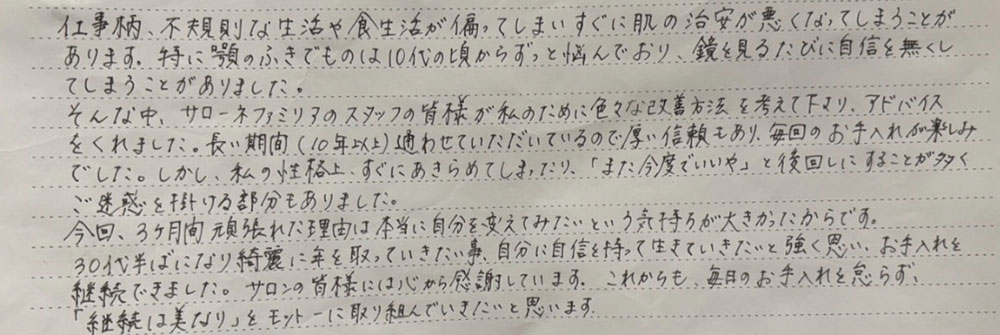 仕事柄、不規則な生活や食生活が偏ってしまいすぐに肌の治安が悪くなってしまうことが
あります。特に顎のふきでものは10代の頃からずっと悩んでおり、鏡を見るたびに自信を無くし
てしまうことがありました。
そんな中、サローネファミリアのスタッフの皆様が私のために色々な改善方法を考えて下さり、アドバイス
をくれました。長い期間(10年以上)通わせていただいているので厚い信頼もあり、毎回のお手入れが楽しみ
でした。しかし、私の性格上、すぐにあきらめてしまったり、「また今度でいいや」と後回しにすることが多く
ご迷惑を掛ける部分もありました。
今回、3ヶ月間頑張れた理由は本当に自分を変えてみたいという気持ちが大きかったからです。
30代半ばになり綺麗に年を取っていきたい事、自分に自信を持って生きていきたいと強く思い、お手入れを
継続できました。サロンの皆様には心から感謝しています。これからも、毎日のお手入れを怠らず、
「継続は美なり」をモットーに取り組んでいきたいと思います。